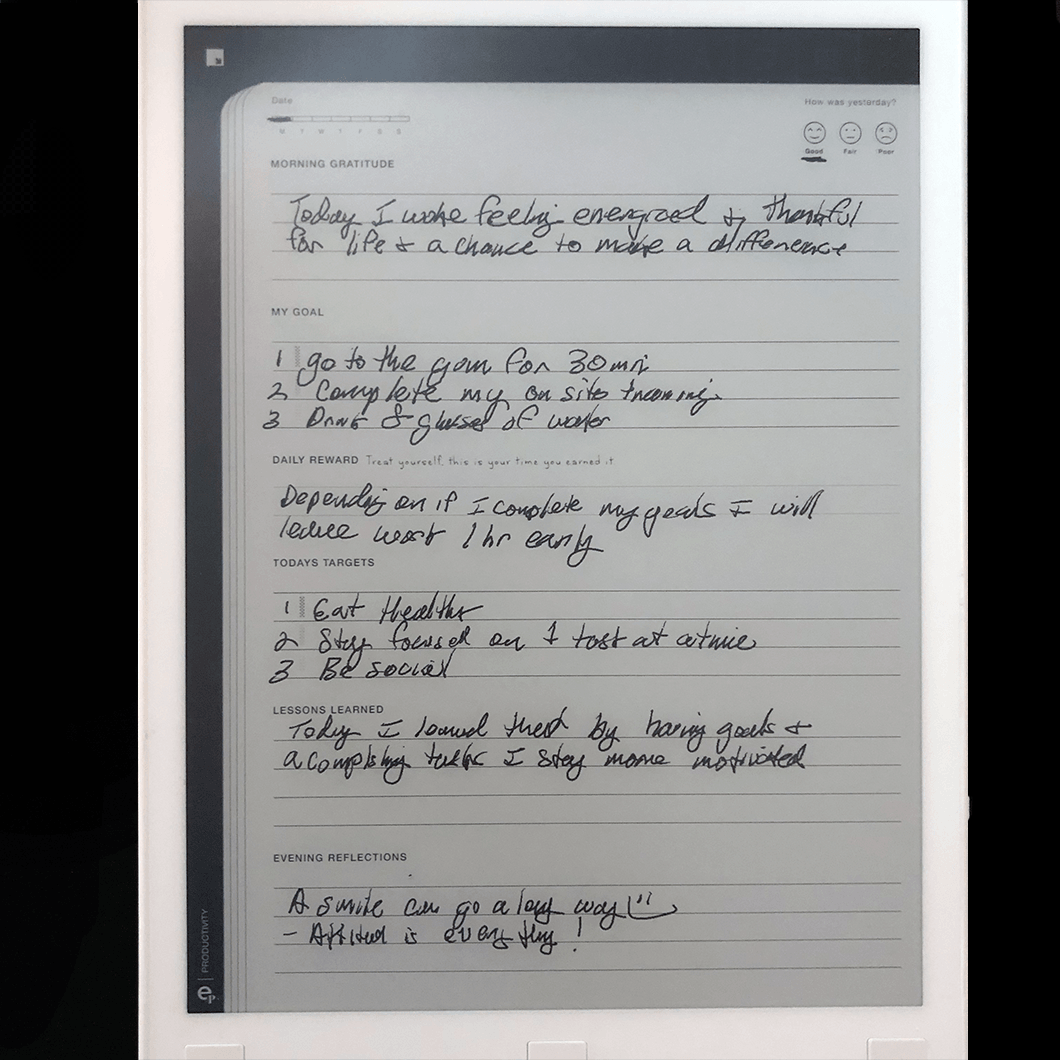 Date
How was yesterday?
M T W T F S S
Good Fair Poor
MORNING GRATITUDE
Today I woke feeling energized & thankful
for life & a chance to make a difference
MY GOAL
1 go to the gym for 30 min
2 Complete my on site training
3 Drink 8 glasses of water
DAILY REWARD Treat yourself, this is your time you earned it
Depending on if I complete my goals I will
leave work 1 hr early
TODAYS TARGETS
1 Eat Healthy
2 Stay focused on 1 task at atime
3 Be social
LESSONS LEARNED
Today I learned that by having goals &
acomplishing tasks I stay more motivated
EVENING REFLECTIONS
A smile can go a long way
- Attitud is everything!
PRODUCTIVITY
ep